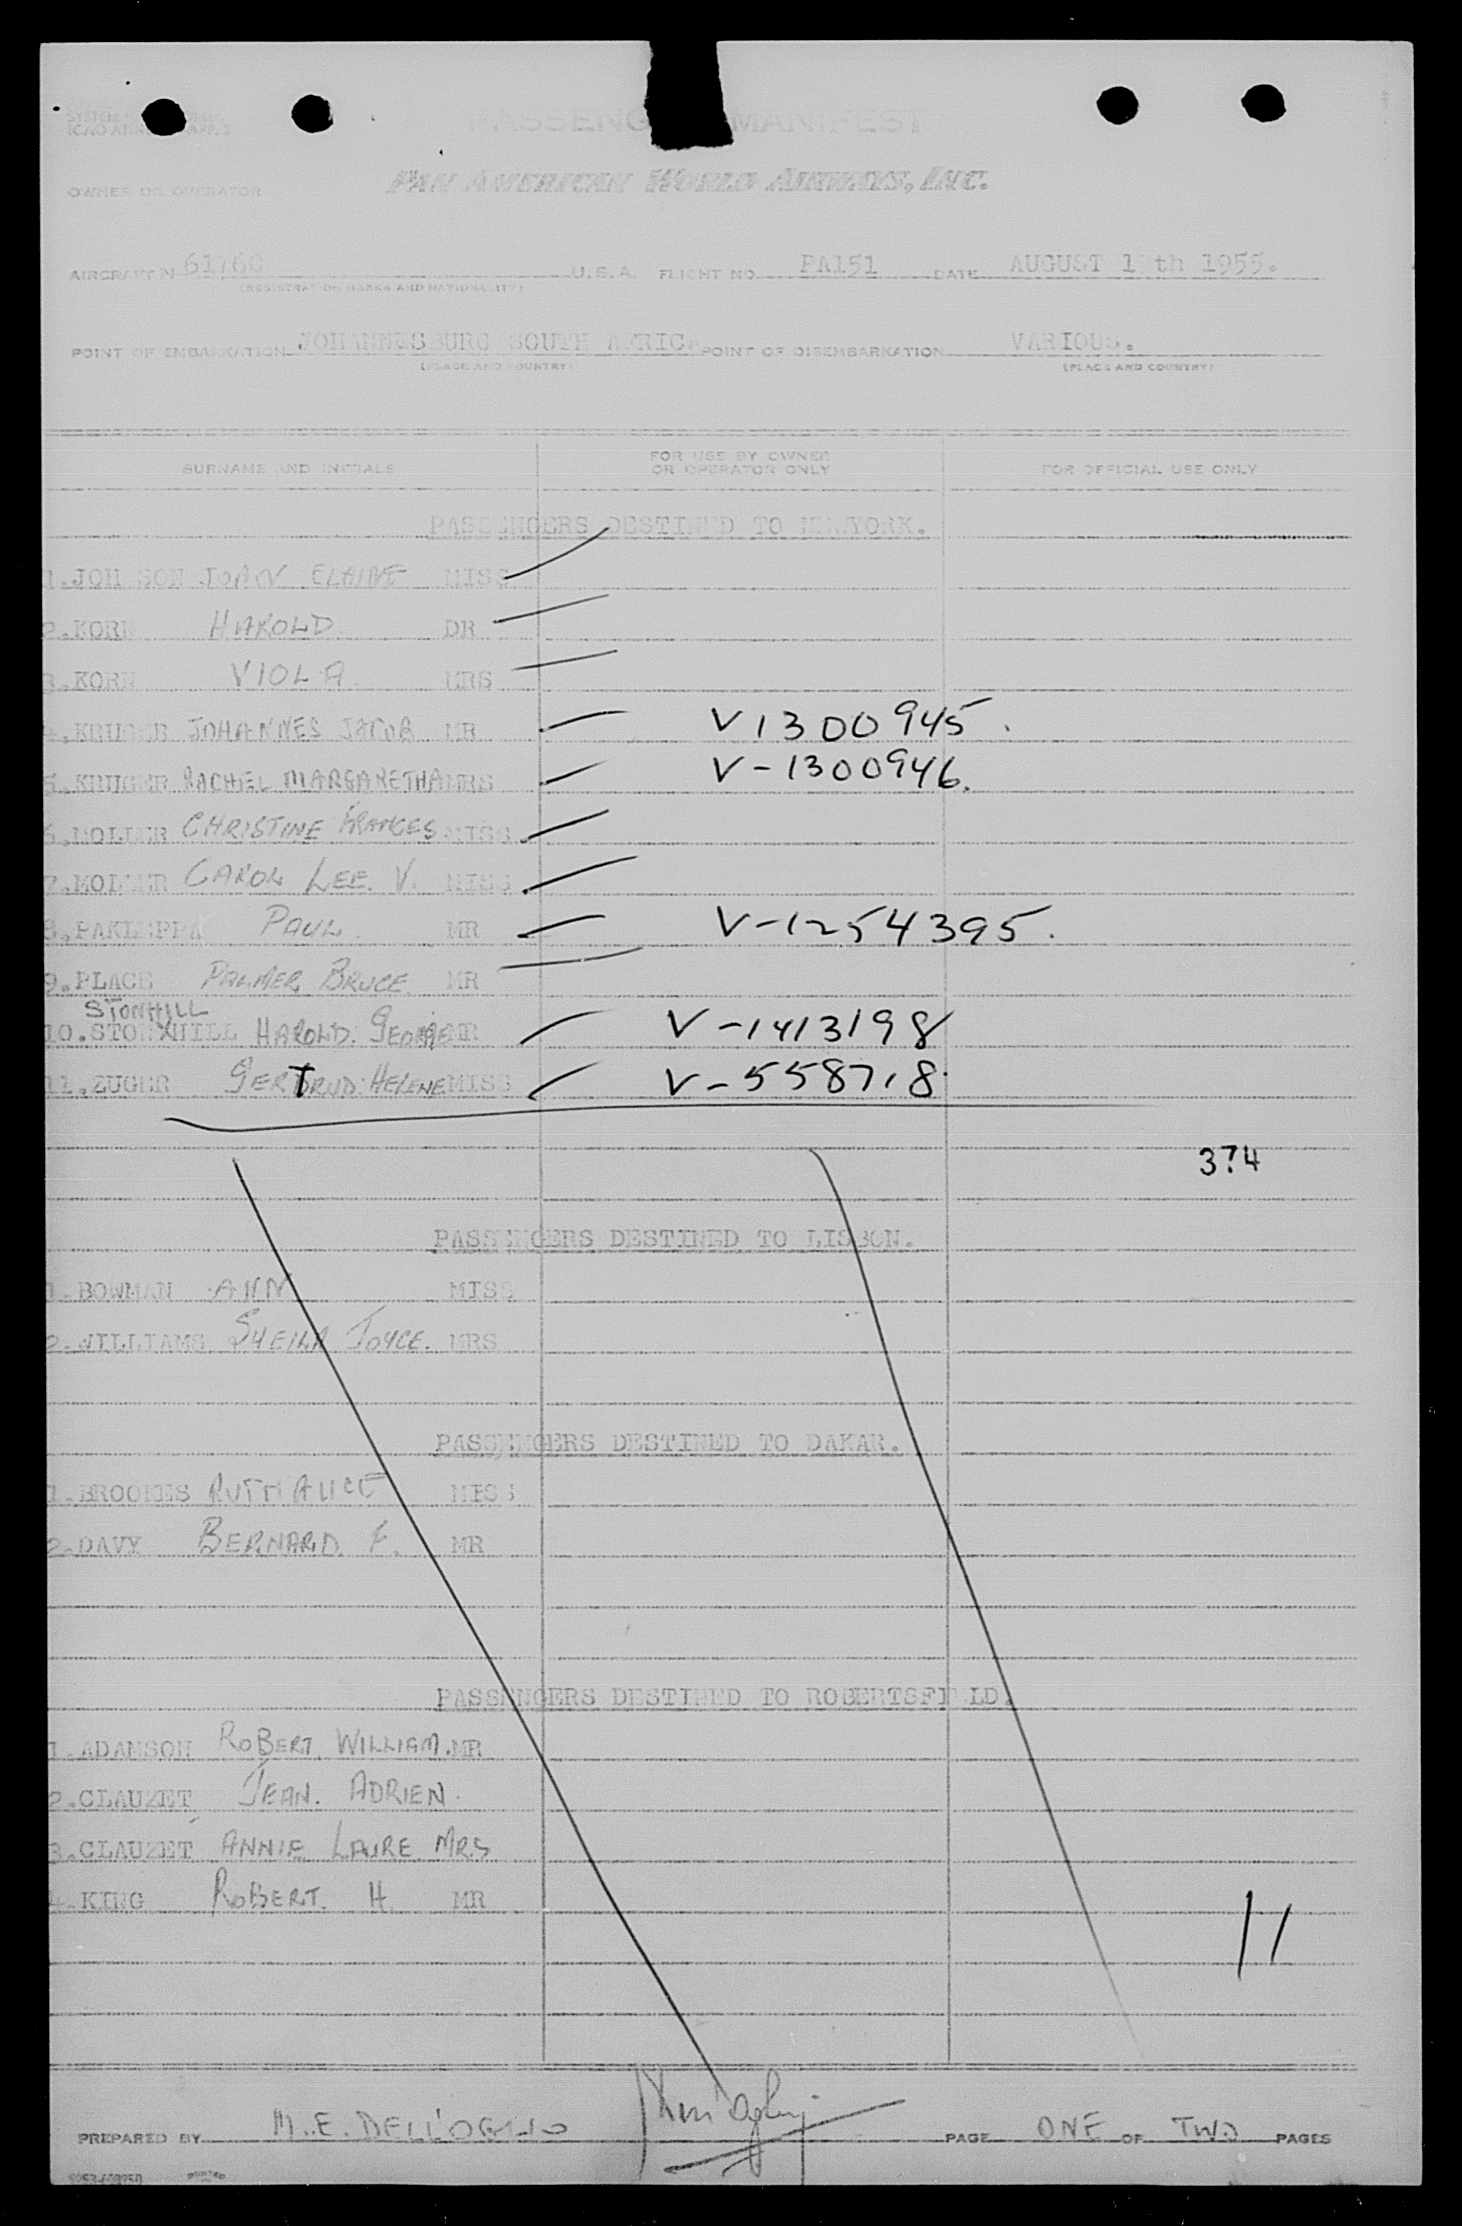 PASSENGER MANIFEST
OWNER OR OPERATOR PAN AMERICAN WORLD AIRWAYS, INC.
AIRCRAFT N U.S.A. FLIGHT NO. PA151 DATE AUGUST th 1955.
(REGISTRATION MARKS AND NATIONALITY)
POINT OF EMBARKATION JOHANNESBURG SOUTH AFRICA POINT OF DISEMBARKATION VARIOUS.
(PLACE AND COUNTRY) (PLACE AND COUNTRY)
SURNAME AND INITIALS FOR USE BY OWNER OR OPERATOR ONLY FOR OFFICIAL USE ONLY
PASSENGERS DESTINED TO NEWYORK.
1.JOHNSON JOANN ELAINE MISS
2.KORN HAROLD DR
3.KORN VIOLA MRS
4.KRUGER JOHANNES JACOB MR V1300945.
5.KRUGER RACHEL MARGARETHA MRS V-1300946.
6.MOLLER CHRISTINE FRANCES MISS
7.MOLLER CAROL LEE. V. MISS
8. PAUL. MR V-1254395.
9.PLACE PALMER BRUCE. MR
STONHILL
10. HAROLD. GEORGE MR V-1413198
11.ZUGER GERTRUD. HELENE MISS V-558718.
374
PASSENGERS DESTINED TO LISBON.
1.BOWMAN ANN MISS
2.WILLIAMS SHEILA JOYCE. MRS
PASSENGERS DESTINED TO DAKAR.
1.BROOKES RUTH ALICE MISS
2.DAVY BERNARD F. MR
PASSENGERS DESTINED TO ROBERTSFIELD.
1.ADAMSON ROBERT. WILLIAM. MR
2.CLAUZET JEAN. ADRIEN.
3.CLAUZET ANNIE LAURE MRS
4.KING ROBERT. H. MR
11
PREPARED BY M.E. DELL'OGLIO PAGE ONE OF TWO PAGES